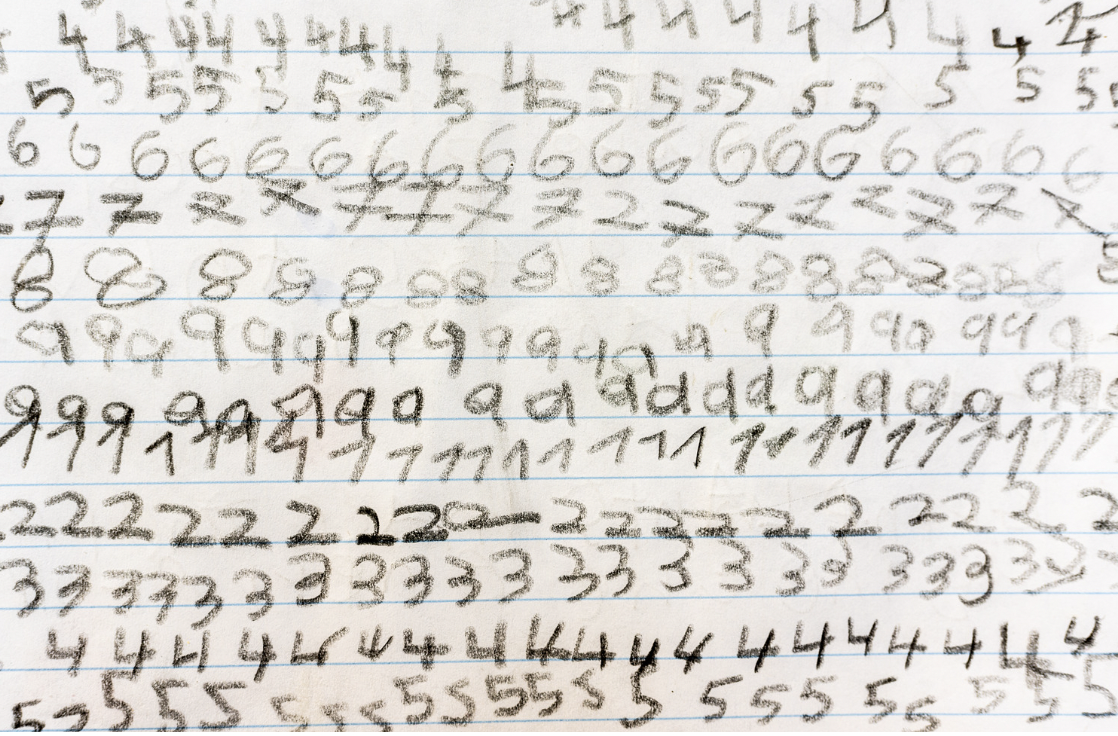 4 4 4 4 4 4 4 4 4 4 4 4 4 4 4 4 4 4 4
5 5 5 5 5 5 5 5 5 5 5 5 5 5 5 5 5 5 5
6 6 6 6 6 6 6 6 6 6 6 6 6 6 6 6 6 6 6
7 7 7 7 7 7 7 7 7 7 7 7 7 7 7 7 7
8 8 8 8 8 8 8 8 8 8 8 8 8 8 8 8 8 8
9 9 9 9 9 9 9 9 9 9 9 9 9 9 9 9 9 9 9 9 9 9
9 9 9 9 9 9 9 9 9 9 9 9 9 9 9 9 9 9 9 9
1 1 1 1 1 1 1 1 1 1 1 1 1 1 1 1 1 1 1 1 1
2 2 2 2 2 2 2 2 2 2 2 2 2 2 2 2 2 2 2
3 3 3 3 3 3 3 3 3 3 3 3 3 3 3 3 3 3 3
4 4 4 4 4 4 4 4 4 4 4 4 4 4 4 4 4 4
5 5 5 5 5 5 5 5 5 5 5 5 5 5 5 5 5 5 5 5 5